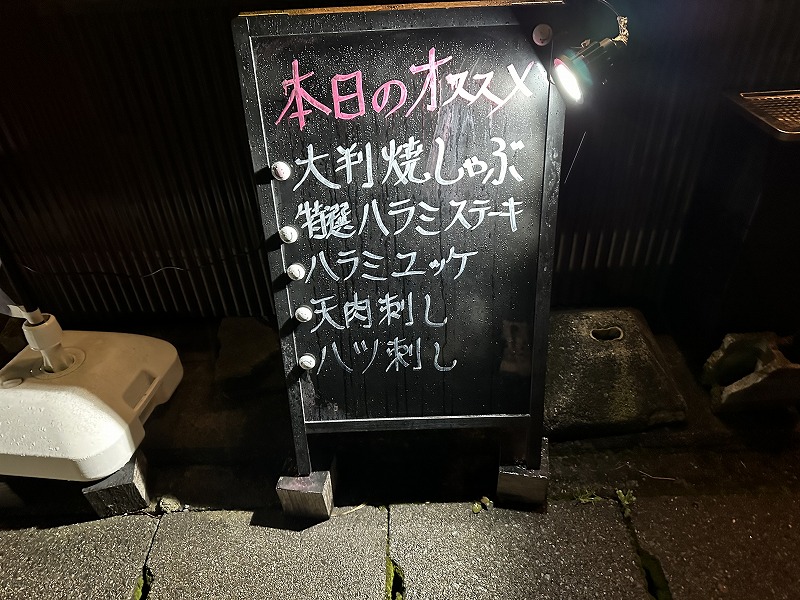 本日のオススメ
大判焼しゃぶ
特選ハラミステーキ
ハラミユッケ
天肉刺し
ハツ刺し